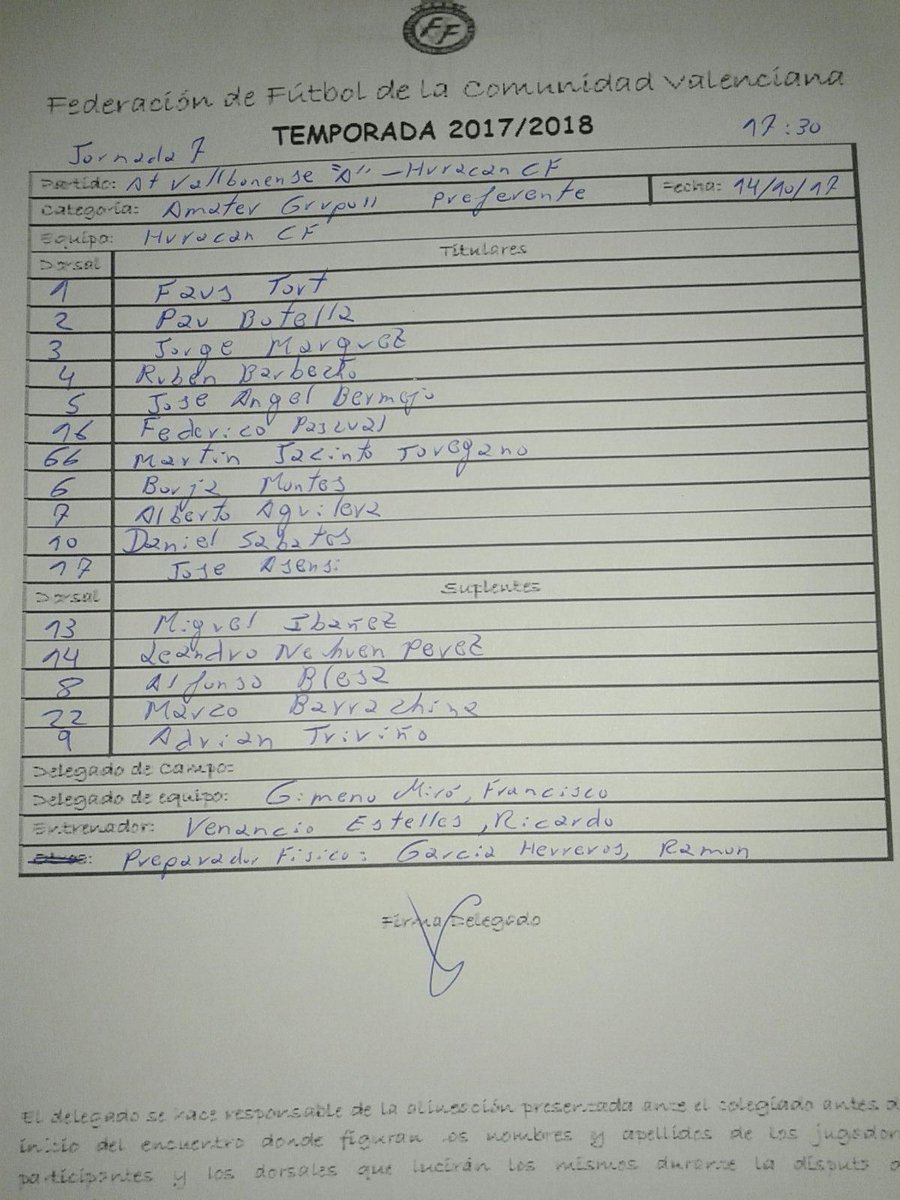 FF
Federación de Fútbol de la Comunidad Valenciana
TEMPORADA 2017/2018
17:30
Jornada 7
Partido: At Vallbonense "A" - Huracan CF
Fecha: 14/10/17
Categoría: Amater Grupo II Preferente
Equipo: Huracan CF
Dorsal Titulares
1 Faus Tort
2 Pau Botella
3 Jorge Marquez
4 Ruben Barbecho
5 Jose Angel Bermejo
16 Federico Pascual
66 Martin Jacinto Toregano
6 Borja Montes
7 Alberto Aguilera
10 Daniel Sabatos
17 Jose Asensi
Dorsal Suplentes
13 Miguel Ibañez
14 Leandro Nehuen Perez
8 Alfonso Blesa
22 Marco Barrachina
9 Adrian Triviño
Delegado de Campo:
Delegado de equipo: Gimeno Miró, Francisco
Entrenador: Venancio Estelles, Ricardo
Otros: Preparador Fisico: Garcia Herreros, Ramon
Firma Delegado
El delegado se hace responsable de la alineación presentada ante el colegiado antes d
inicio del encuentro donde figuran los nombres y apellidos de los jugador
participantes y los dorsales que lucirán los mismos durante la disputa d